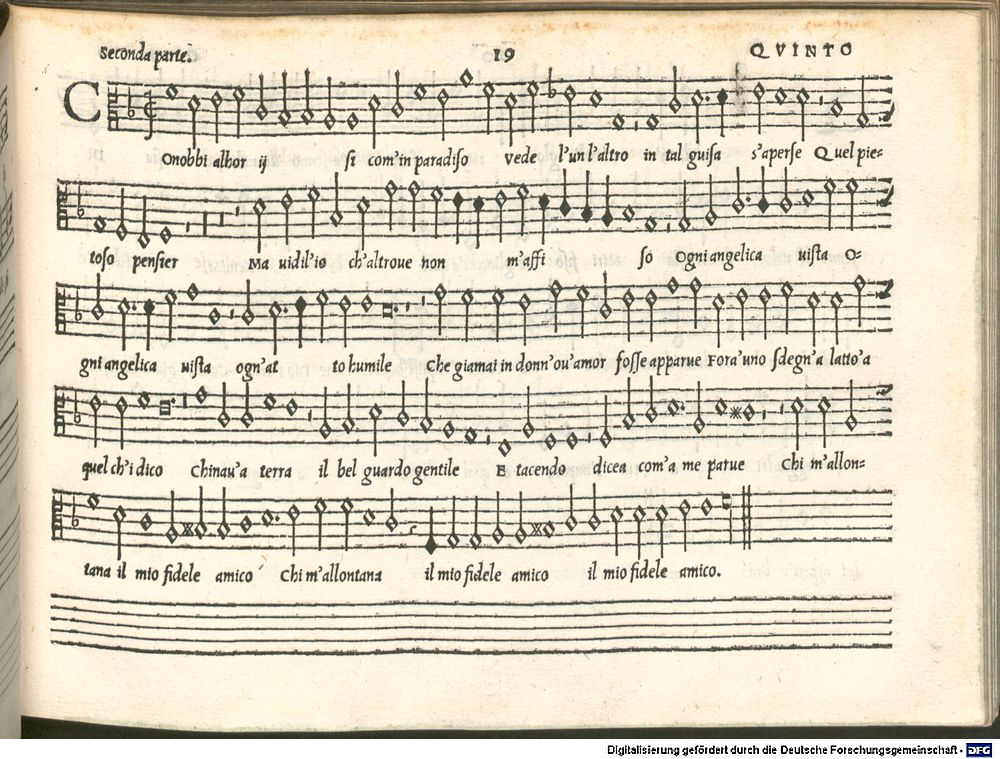 Seconda parte. 19 QVINTO
COnobbi alhor ij si com'in paradiso vede l'un l'altro in tal guisa s'aperse Quel pie=
toso pensier Ma uidil'io ch'altroue non m'affi so Ogni angelica uista O=
gni angelica uista ogn'at to humile Che giamai in donn'ou'amor fosse apparue Fora'uno sdegn'a latto'a
quel ch'i dico Chinau'a terra il bel guardo gentile E tacendo dicea com'a me parue Chi m'allon=
tana il mio fidele amico Chi m'allontana il mio fidele amico il mio fidele amico.
Digitalisierung gefördert durch die Deutsche Forschungsgemeinschaft - DFG